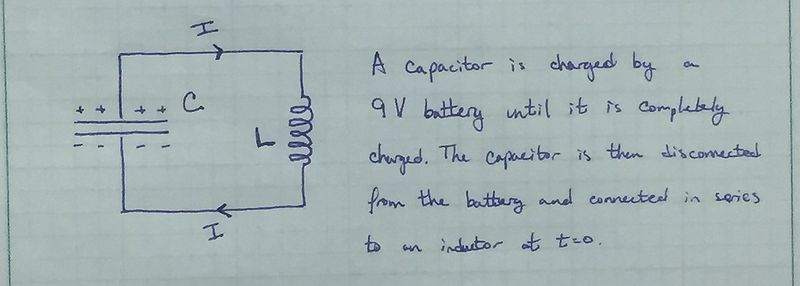 I
+ + + +
C
- - - -
L
I
A capacitor is charged by a
9V battery until it is completely
charged. The capacitor is then disconnected
from the battery and connected in series
to an inductor at t=0.